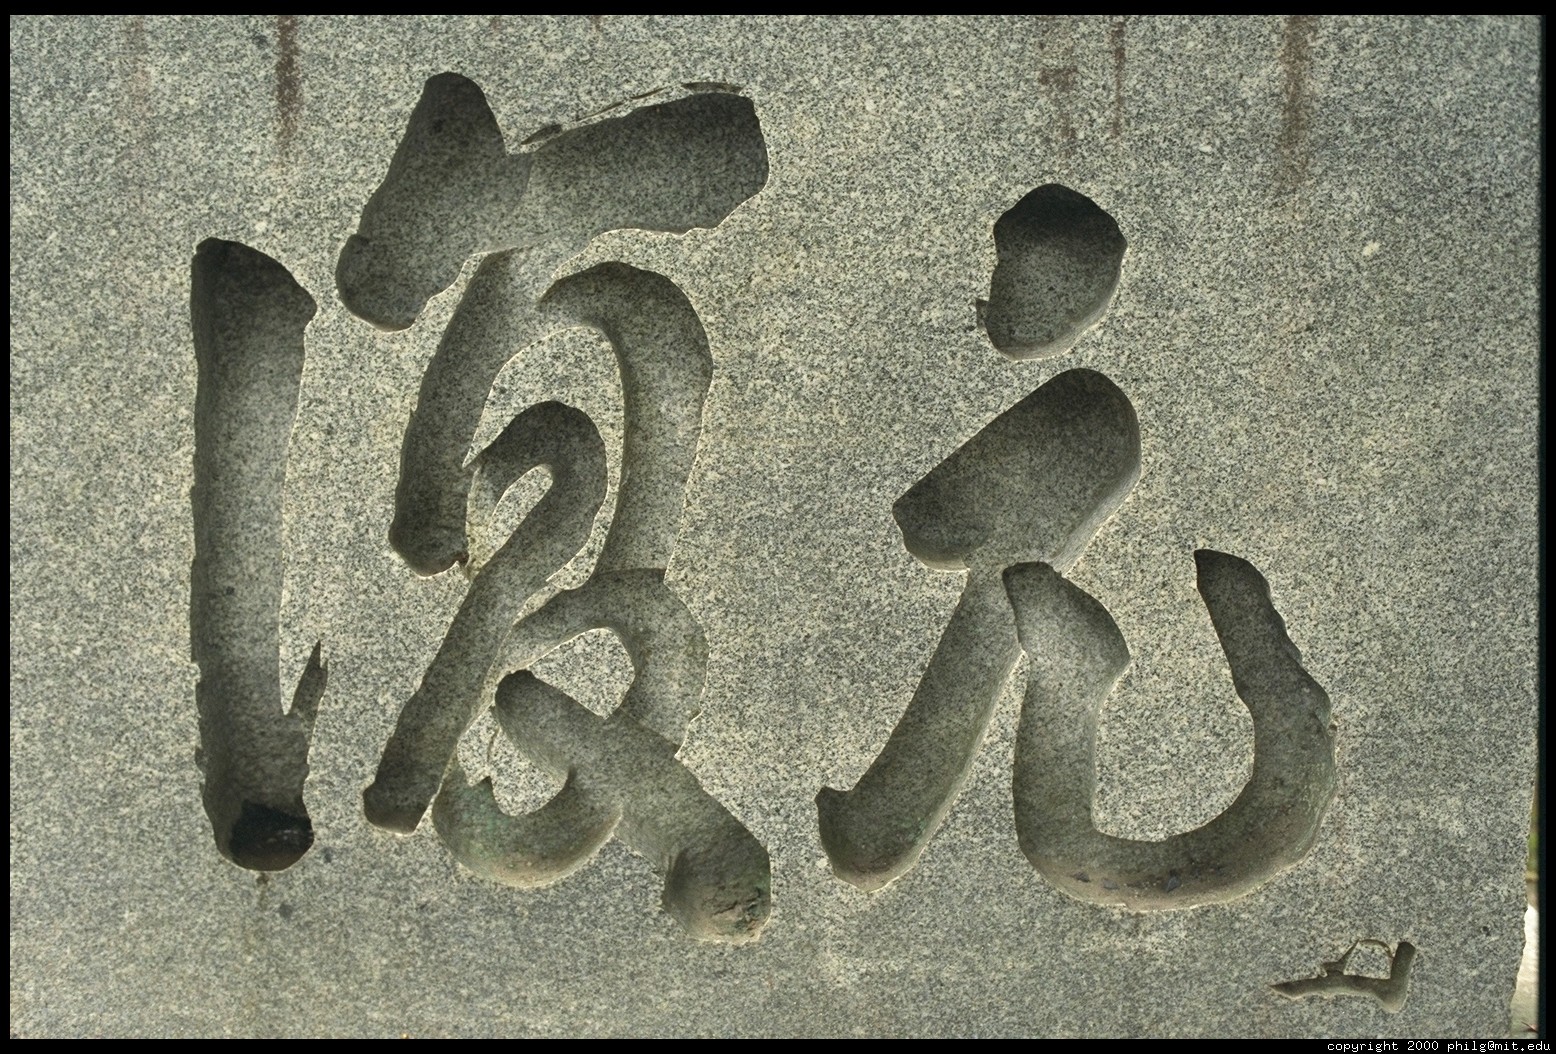 復元
copyright 2000 philg@mit.edu